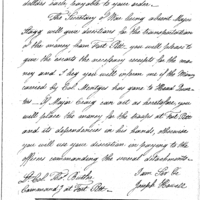 dollars each, payable to your order.
The Secretary of War being absent Major
Stagg will give directions for the transportation
of the money from Fort Pitt. you will please to
give the security the necessary receipts for the mo-
ney and I beg you will inform me of the Money
carried by Col. Mentges has gone to Head Quar-
ters. If Major Craig can act as heretofore, you
will place the money for the troops at Fort Pitt
and its dependencies in his hands, otherwise
you will use your discretion in paying to the
officers commanding the several detachments.
I am Sir &c
Joseph Howell
Lt Col. Thos. Butler
Commandg at Fort Pitt